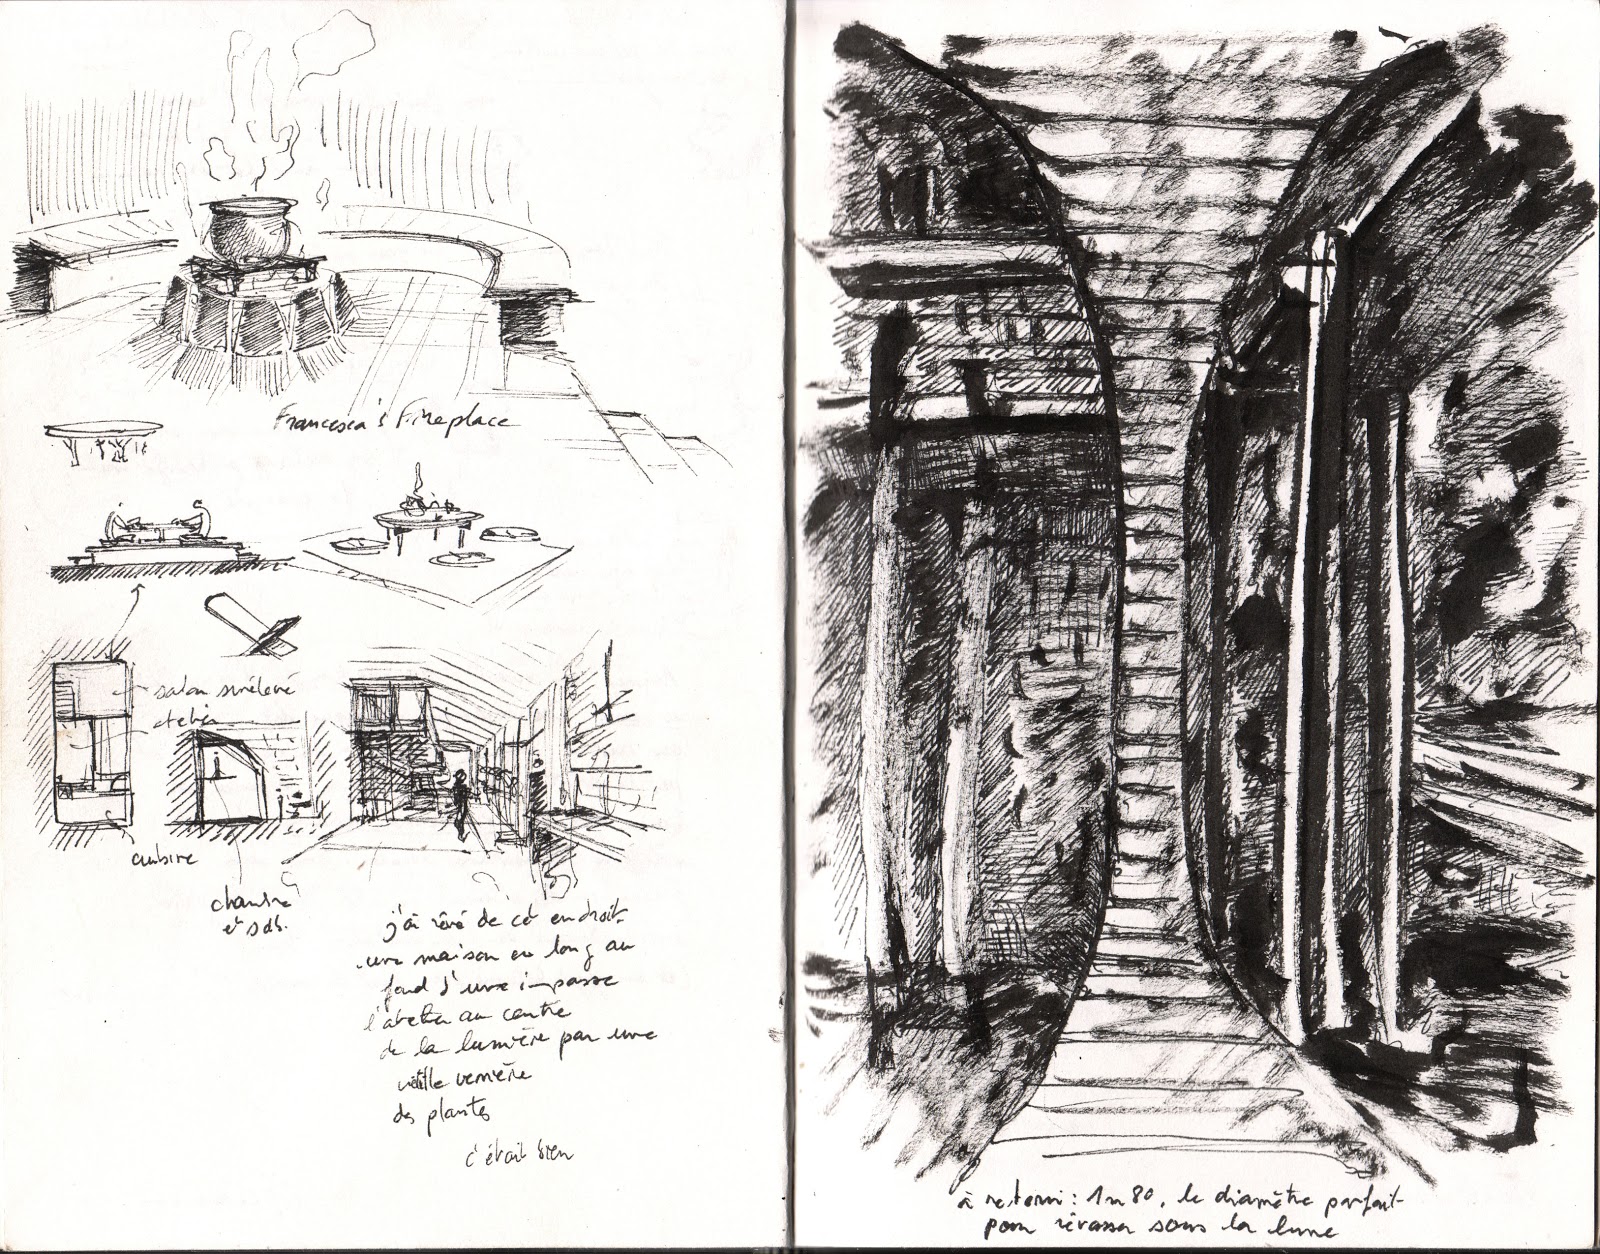 Francesca's Fireplace
salon surélevé
atelier
cuisine
chambre
et sdb.
j'ai rêvé de cet endroit
une maison en long au
fond d'une impasse
l'atelier au centre
de la lumière par une
vieille verrière
des plantes
c'était bien
à retenir : 1m80, le diamètre parfait
pour rêvasser sous la lune